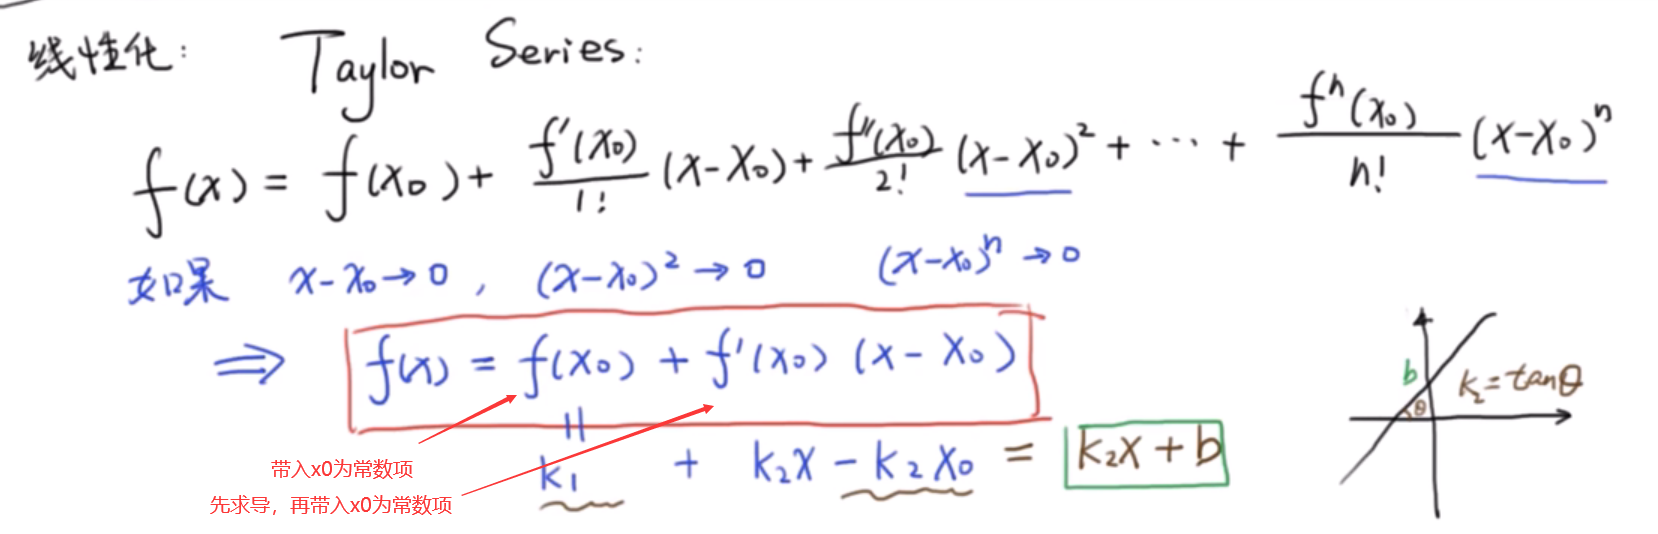 线性化: Taylor Series:
f(x) = f(x₀) + f'(x₀)/1! (x-x₀) + f''(x₀)/2! (x-x₀)² + ... + fⁿ(x₀)/n! (x-x₀)ⁿ
如果 x-x₀→0, (x-x₀)²→0 (x-x₀)ⁿ→0
⇒ f(x) = f(x₀) + f'(x₀) (x-x₀)
‖
k₁ + k₂x - k₂x₀ = k₂x + b
带入x0为常数项
先求导，再带入x0为常数项
b
θ
k₂=tanθ